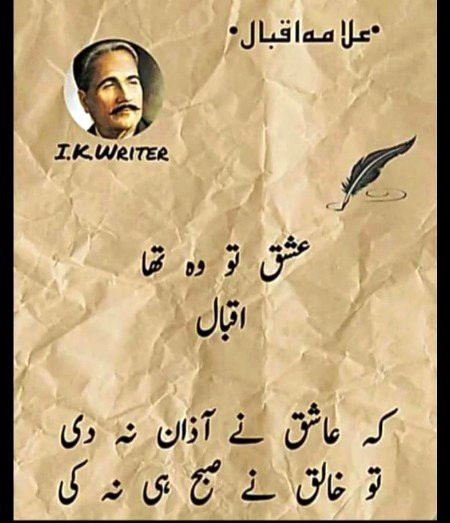 •علامہ اقبال•
I.K.WRITER
عشق تو وہ تھا
اقبال
کہ عاشق نے آذان نہ دی
تو خالق نے صبح ہی نہ کی